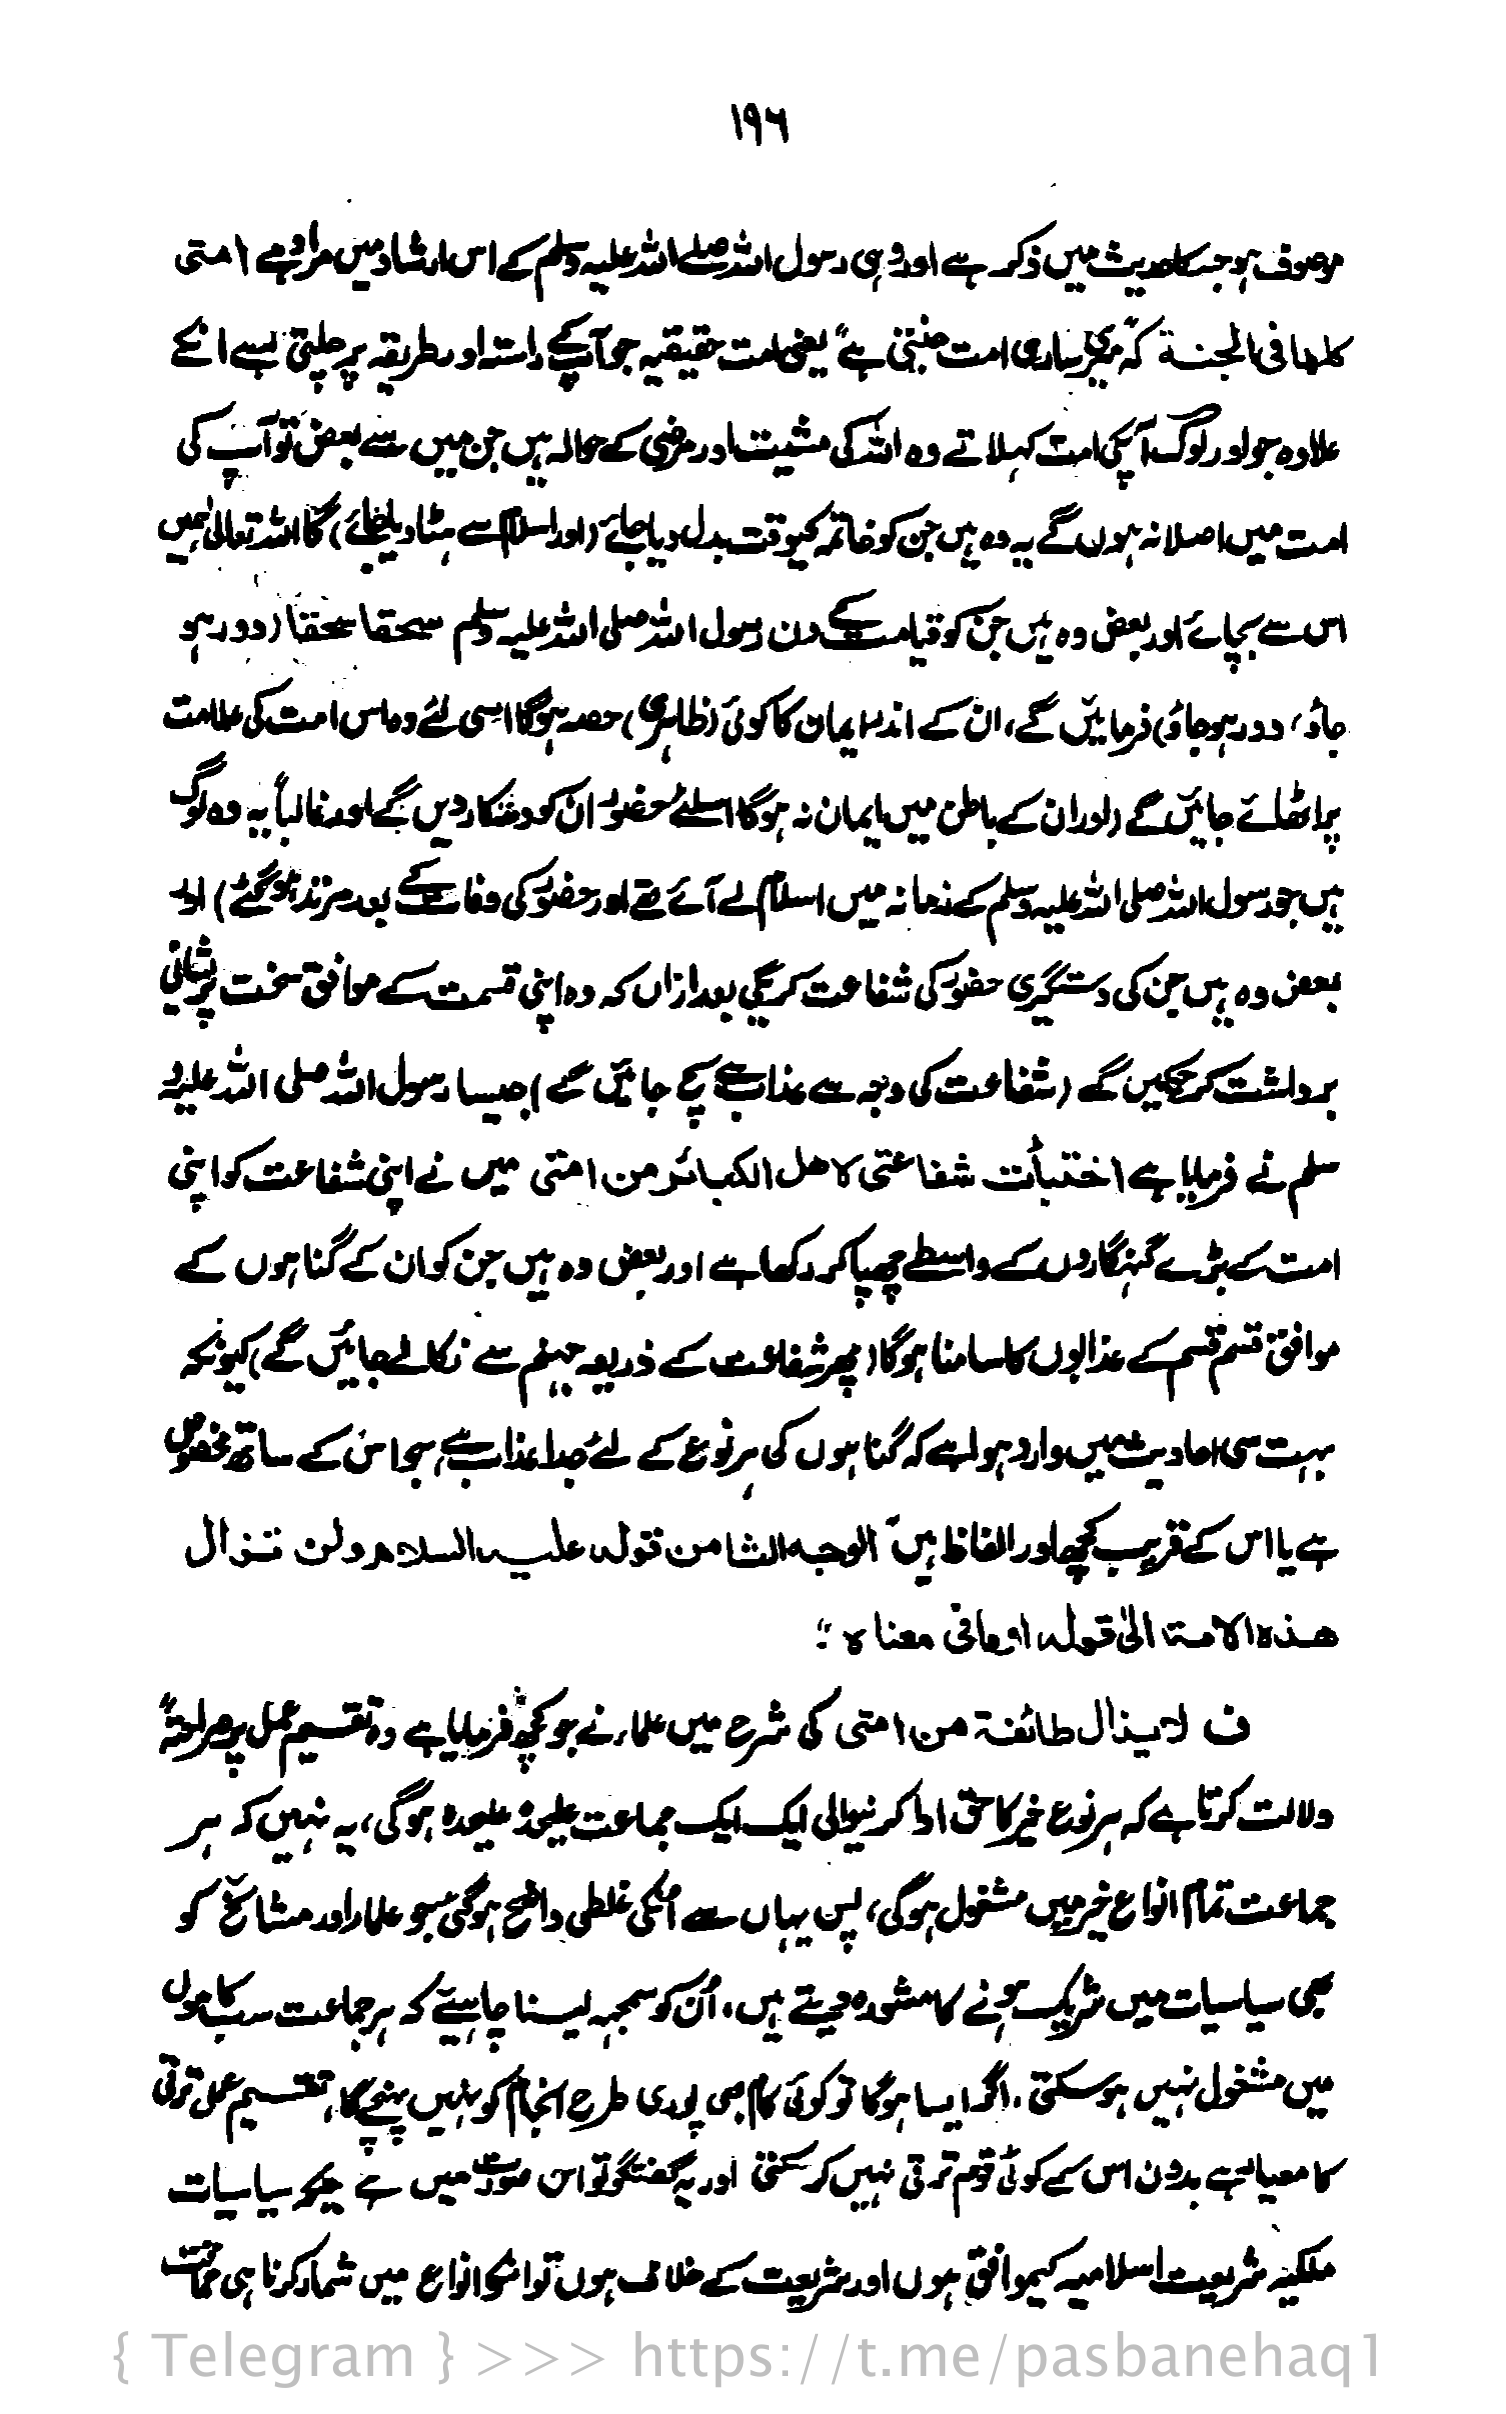 ۱۹۶
موصوف ہو جسکا حدیث میں ذکر ہے اور وہی رسول اللہ صلے اللہ علیہ وسلم کے اس ارشاد میں مراد ہے امتی
کلھا فی الجنۃ کہ "میری ساری امت جنتی ہے" یعنی امت حقیقیہ جو آپ کے راستہ اور طریقہ پر چلتی ہے انکے
علاوہ جو اور لوگ آپکی امت کہلاتے وہ اللہ کی مشیت اور مرضی کے حوالہ ہیں جن میں سے بعض تو آپ کی
امت میں اصلا نہ ہوں گے یہ وہ ہیں جن کو خاتمہ کیوقت بدل دیا جائے (اور اسلام سے ہٹا دیا جائے) گا اللہ تعالیٰ ہمیں
اس سے بچائے اور بعض وہ ہیں جن کو قیامت کے دن رسول اللہ صلی اللہ علیہ وسلم سحقا سحقا (دور ہو
جاؤ، دور ہو جاؤ) فرمائیں گے، ان کے اندر ایمان کا کوئی (ظاہری) حصہ ہوگا اسی لئے وہ اس امت کی علامت
پر اٹھائے جائیں گے (اور ان کے باطن میں ایمان نہ ہوگا اسلئے حضورؐ ان کو دھتکار دیں گے اور غالباً یہ وہ لوگ
ہیں جو رسول اللہ صلی اللہ علیہ وسلم کے زمانہ میں اسلام لے آئے تھے اور حضورؐ کی وفات کے بعد مرتد ہو گئے) اور
بعض وہ ہیں جن کی دستگیری حضورؐ کی شفاعت کریگی بعد ازاں کہ وہ اپنی قسمت کے موافق سخت پریشانی
برداشت کر چکیں گے (شفاعت کی وجہ سے عذاب سے بچ جائیں گے) جیسا رسول اللہ صلی اللہ علیہ و
سلم نے فرمایا ہے اختبأت شفاعتی لاھل الکبائر من امتی میں نے اپنی شفاعت کو اپنی
امت کے بڑے گنہگاروں کے واسطے چھپا کر رکھا ہے اور بعض وہ ہیں جن کو ان کے گناہوں کے
موافق قسم قسم کے عذابوں کا سامنا ہوگا (پھر شفاعت کے ذریعہ جہنم سے نکالے جائیں گے) کیونکہ
بہت سی احادیث میں وارد ہوا ہے کہ گناہوں کی ہر نوع کے لئے جدا عذاب ہے، جو اس کے ساتھ مخصوص
ہے یا اس کے قریب کچھ اور الفاظ ہیں" الوجہ الثامن قولہ علیہ السلام ولن تزال
ھذہ الامۃ الیٰ قولہ او مافی معناہ ؛
ف لا یزال طائفۃ من امتی کی شرح میں علماء نے جو کچھ فرمایا ہے وہ تقسیم عمل پر صراحۃً
دلالت کرتا ہے کہ ہر نوع خیر کا حق ادا کرنیوالی ایک ایک جماعت علیحدہ علیحدہ ہوگی، یہ نہیں کہ ہر
جماعت تمام انواع خیر میں مشغول ہوگی، پس یہاں سے انکی غلطی واضح ہوگئی جو علماء اور مشائخ کو
بھی سیاسیات میں شریک ہونے کا مشورہ دیتے ہیں، اُن کو سمجھ لینا چاہیئے کہ ہر جماعت سب کاموں
میں مشغول نہیں ہوسکتی، اگر ایسا ہوگا تو کوئی کام بھی پوری طرح انجام کو نہیں پہنچے گا، تقسیم عمل ترقی
کا معیار ہے بدون اس کے کوئی قوم ترقی نہیں کر سکتی اور یہ گفتگو تو اس صورت میں ہے جبکہ سیاسیات
ملکیہ شریعت اسلامیہ کیموافق ہوں اور شریعت کے خلاف ہوں تو انکو انواع میں شمار کرنا ہی حماقت
{ Telegram } >>> https://t.me/pasbanehaq1